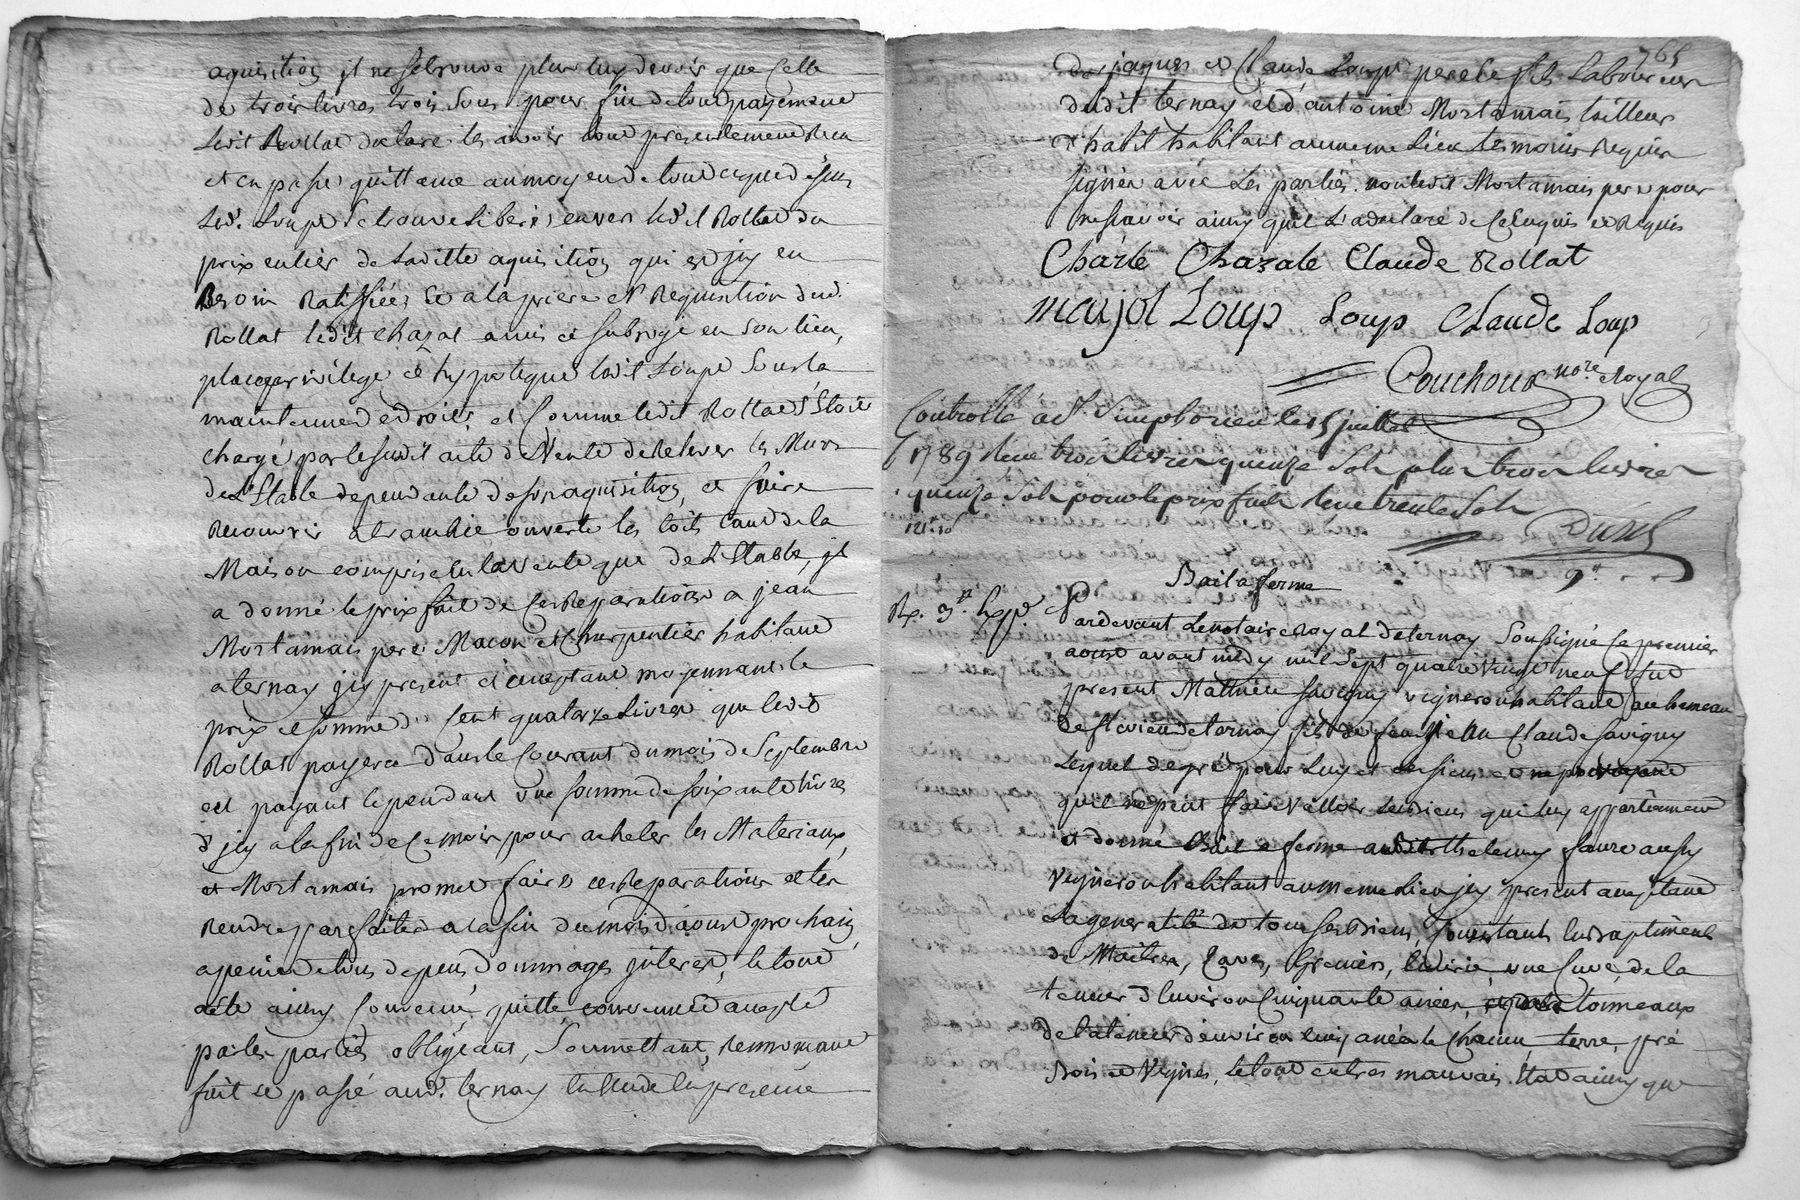 aquisition jl ne se trouve plus luy devoir que Celle
de trois livres trois sous pour fin de tout payement
Ledit Rollat declare les avoir tout presentement Reçu
et en passe quittance au moyen de tout ce que dessus
Led. Loup se trouve liberé envers ledit Rollat du
prix entier de laditte aquisition qui est jcy en
Besoin Ratiffiée; Et a la priere et Requisition dud.
Rollat ledit Chazal a mis et subrogé en son lieu,
place privilege et hypoteque ledit Loup sous la
maintenue de droit; et Comme ledit Rollat s'Etoit
chargé par le susdit acte de Vente de Relever les Murs
de L'Etable dependante de son aquisition, et faire
Recouvrir les toits tant de la
Maison comprise en la vente que de L'Etable, jl
a donné le prix fait de Ces Reparations a jean
Mortamais pere Maçon et Charpentier habitant
a ternay jcy present et acceptant moyennant le
prix et somme de Cent quatorze Livres que ledit
Rollat payera dans le Courant du mois de Septembre
et payant cependant une somme de soixante livres
d'jcy a la fin de Ce mois pour acheter les Materiaux,
et Mortamais promet faire ces Reparations et les
Rendre parfaites a la fin du mois d'aoust prochain
a peine de tous depens, dommages jnterest, le tout
a été ainsy Convenu, quitte, convenu et accepté
par les parties obligeant, Soumettant, Renonceant
fait et passé aud. ternay Etude En presence
765
De jaques et Claude Loup pere et fils Laboureurs
dudit ternay et d'antoine Mortamais tailleur
d'habit habitant au meme Lieu temoins Requis
signés avec Les parties. non ledit Mortamais pere pour
ne sçavoir ainsy qu'il L'a declaré de Ce Enquis et Requis
Charle Chazale Claude Rollat
marjol Loup Loup Claude Loup
Couchoud no.re Royal
Controllé a St. Simphorien le 5 juillet
1789 Reçu trois livres quinze sols plus trois livres
quinze sols pour le prix fait Reçu trente sols
Bail a ferme
Rx. 3
Pardevant Le notaire Royal de ternay Soussigné Ce premier
aoust avant midy mil sept quatre Vingt neuf fut
present Mathieu Savigny vigneron habitant au hameau
de flevieu de ternay fils de feu Claude Savigny
Lequel de gré pour Luy et les siens
qu'il ne peut faire Valloir Les biens qui luy appartiennent
et donné Bail a ferme audit thelemy faure aussy
Vigneron habitant au meme Lieu jcy present acceptant
La generalité de tous ses biens, Consistants En Batiments
de Maitres, Caves, Greniers, Ecurie une Cuve, de la
teneur d'Environ Cinquante anées, tonneaux
de la teneur d'environ cinq anées Chacun terre, pré
Bois et Vignes, Le tout en tres mauvais Etat ainsy que